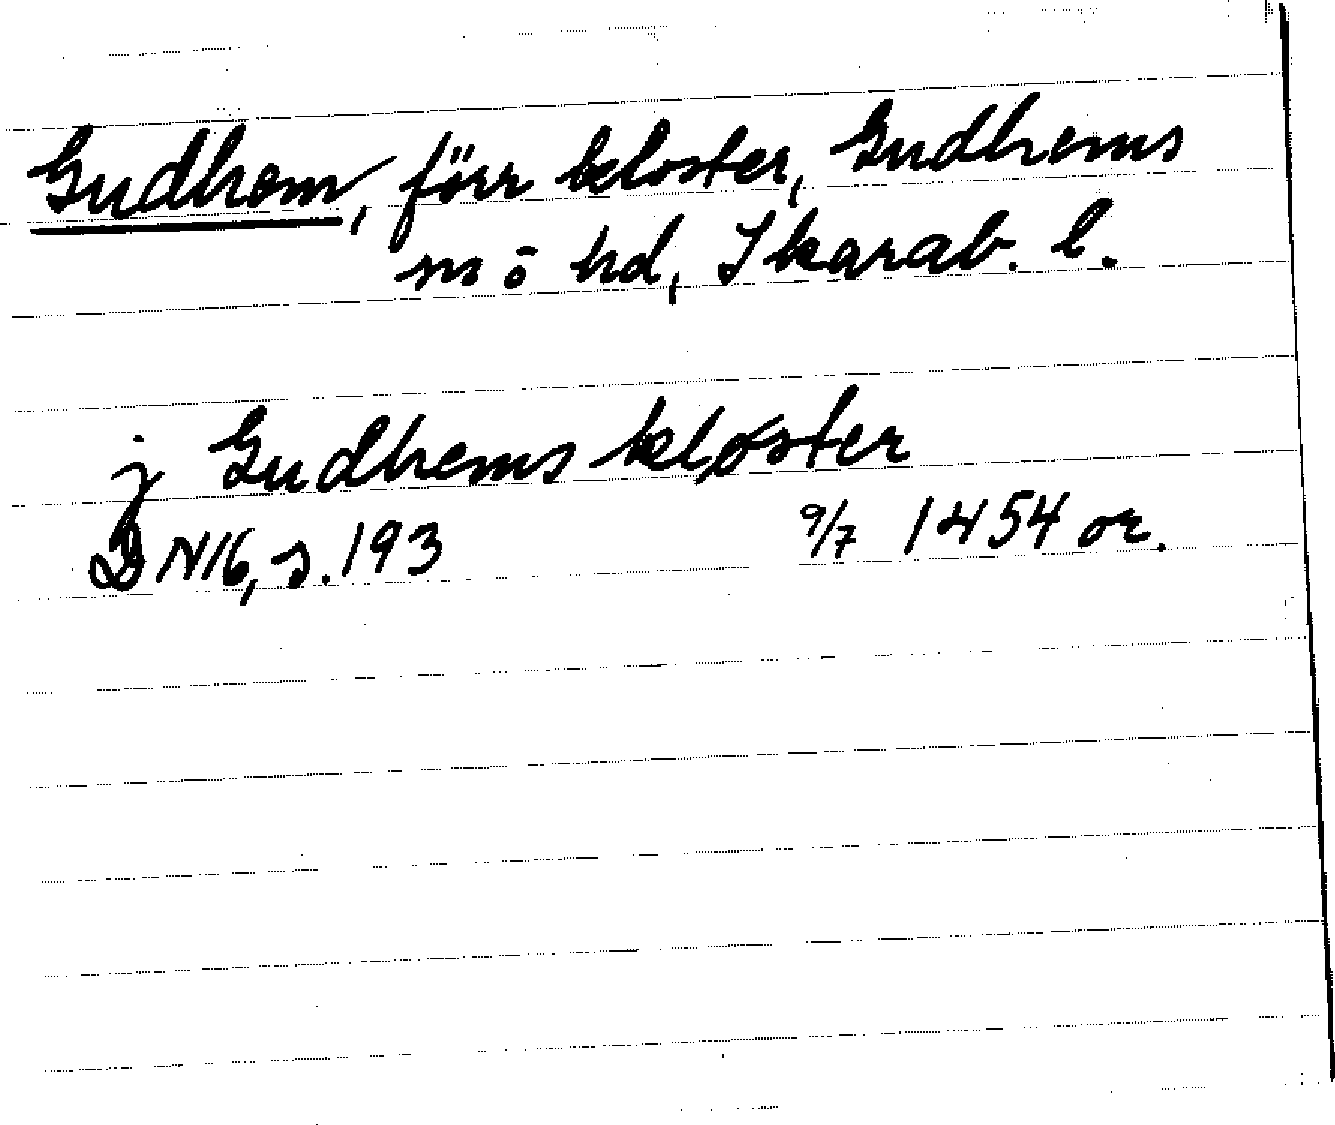 Gudhem, förr kloster, Gudhems
sn o hd, Skarab. l.
j Gudhems kloster
DN16, s. 193 9/7 1454 or.